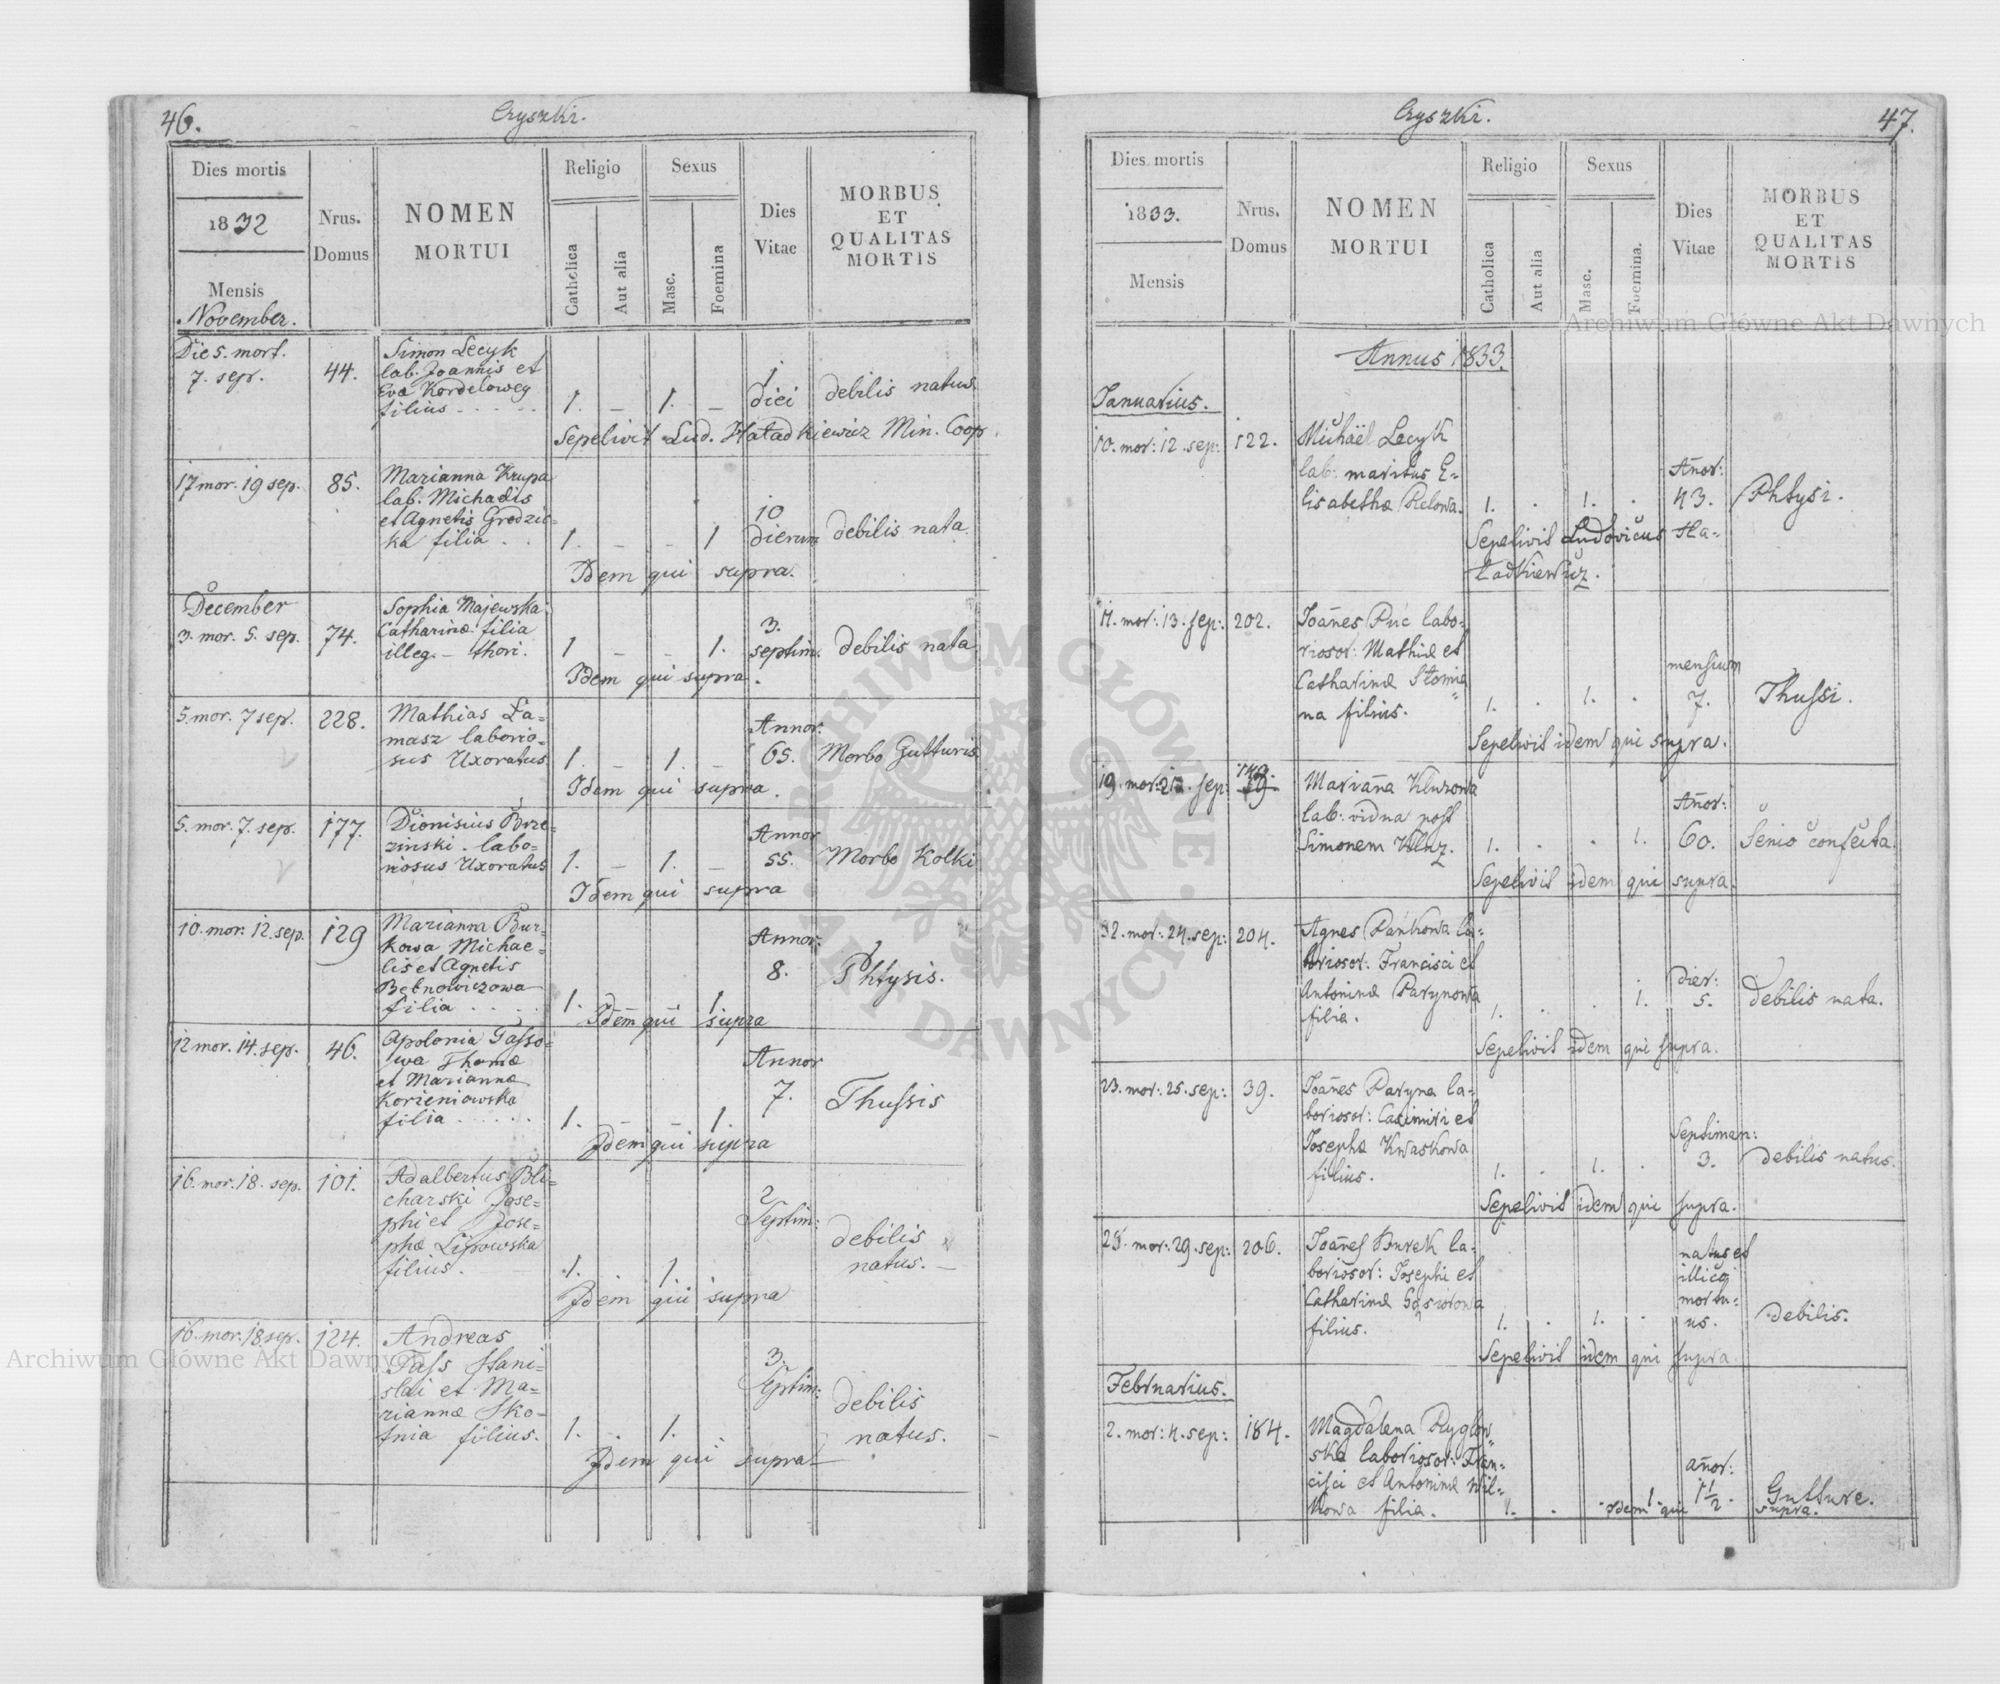 46.
Czyszki.
Dies mortis
1832
Mensis
November.
Nrus.
Domus
NOMEN
MORTUI
Religio
Catholica
Aut alia
Sexus
Masc.
Foemina
Dies
Vitae
MORBUS
ET
QUALITAS
MORTIS
Die 5. mort.
7. sep.
44.
Simon Lecyk
lab. Joannis et
Eva Kordeloweg
filius
1. – 1. –
1
diei
debilis natus
Sepelivit Lud. Hatadkiewicz Min. Coop.
17 mor. 19 sep.
85.
Marianna Krupa
lab. Michaelis
et Agnetis Grodzic=
ka filia . .
1. – – 1
10
dierum
debilis nata
Idem qui supra.
December
3. mor. 5. sep.
74.
Sophia Majewska
Catharinæ filia
illeg. – thori.
1 – – 1.
3.
septim.
debilis nata
Idem qui supra.
5. mor. 7 sep.
228.
Mathias La=
masz laborio=
sus Uxoratus
1. – 1. –
Annor.
65.
Morbo Gutturis
Idem qui supra.
5. mor. 7. sep.
177.
Dionisius Brze=
zinski labo=
riosus Uxoratus
1. – 1. –
Annor
55.
Morbo Kolki
Idem qui supra
10. mor. 12. sep.
129
Marianna Bur=
kowa Michae=
lis et Agnetis
Bębnowiczowa
filia . . . .
1. 1.
Annor.
8.
Phtysis.
Idem qui supra
12 mor. 14. sep.
46.
Apolonia Tasso=
wa Thomæ
et Mariannæ
Korzeniowska
filia . . . . .
1. – – 1.
Annor
7.
Thussis
Idem qui supra
16. mor. 18. sep.
101.
Adalbertus Bli=
charski Jose=
phi et Jose=
phæ Lipowska
filius.
1. 1.
2
Septim:
debilis
natus. –
Idem qui supra
16. mor. 18 sep.
124.
Andreas
Tass Stani=
slai et Ma=
riannæ Sko=
tnia filius.
1. . 1. .
3.
Septim:
debilis
natus. –
Idem qui supra
Czyszki.
47.
Dies mortis
1833.
Mensis
Nrus.
Domus
NOMEN
MORTUI
Religio
Catholica
Aut alia
Sexus
Masc.
Foemina.
Dies
Vitae
MORBUS
ET
QUALITAS
MORTIS
Annus 1833.
Januarius.
10. mor: 12. sep:
122.
Michaël Lecyk
lab: maritus E=
lisabethæ Relowa.
1. . 1. .
Añor:
43.
Phtysi.
Sepelivit Ludovicus Ha=
ładkiewicz.
11. mor: 13. sep:
202.
Joañes Puć labo=
riosor: Mathiæ et
Catharinæ Słomia
na filius.
1. . 1. .
mensium
7.
Thussi.
Sepelivit idem qui supra.
19. mor: 21. sep:
Mariaña Kluzowa
lab: vidua post
Simonem Kluz.
1. . . 1.
Añor:
60.
Senio confecta.
Sepelivit idem qui supra.
22. mor: 24. sep:
204.
Agnes Pańkowa la=
boriosor: Francisci et
Antoninæ Parynowa
filia.
1. . . 1.
dier:
5.
debilis nata.
Sepelivit idem qui supra.
23. mor: 25. sep:
39.
Joañes Paryna la=
boriosor: Casimiri et
Josephæ Kwaskowa
filius.
1. . 1. .
Septiman:
3.
debilis natus.
Sepelivit idem qui supra.
28. mor: 29. sep:
206.
Joañes Burek la=
boriosor: Josephi et
Catharinæ
filius.
1. . 1. .
natus et
illico
mortu=
us.
debilis.
Sepelivit idem qui supra.
Februarius.
2. mor: 4. sep:
184.
Magdalena Ryglow=
ska laboriosor: Fran=
cisci et Antoninæ Wil=
kowa filia.
1. . . 1.
añor:
1 1/2.
Gutture.
idem qui supra.
Archiwum Główne Akt Dawnych
Archiwum Główne Akt Dawnych
ARCHIWUM GŁÓWNE · AKT DAWNYCH ·